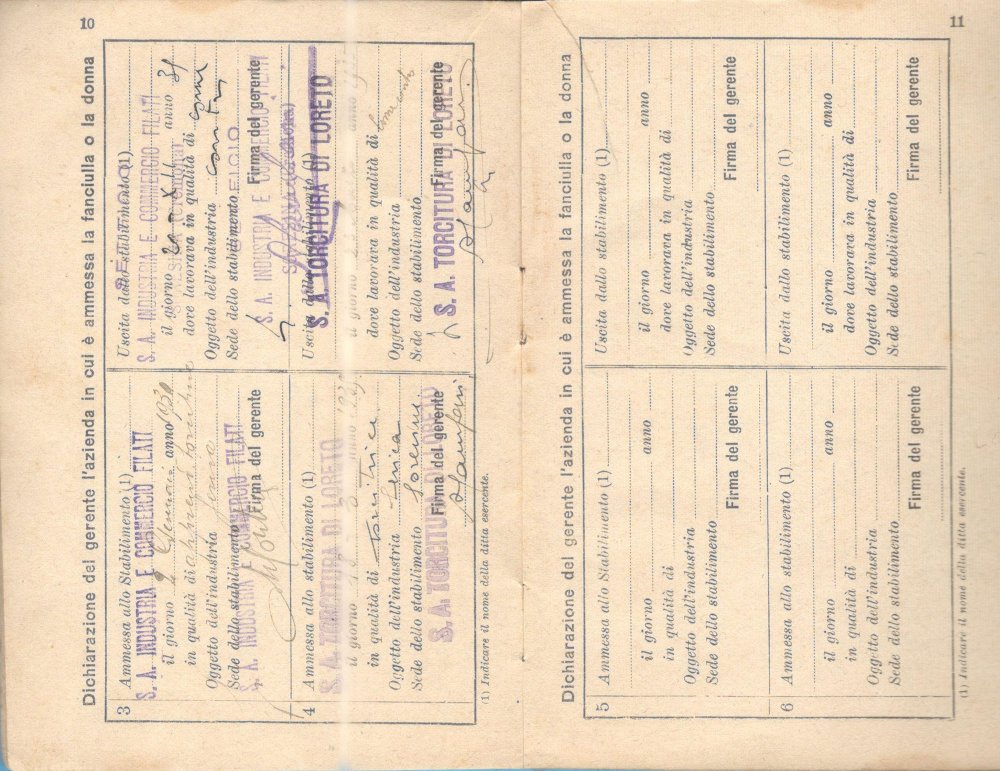 10
Dichiarazione del gerente l'azienda in cui è ammessa la fanciulla o la donna
3
Ammessa allo Stabilimento (1)
S. A. INDUSTRIA E COMMERCIO FILATI
il giorno 2 anno 1931
in qualità di apprendista
Oggetto dell'industria
Sede dello stabilimento
S. A. INDUSTRIA E COMMERCIO FILATI
Firma del gerente
Uscita dallo stabilimento (1)
S. A. INDUSTRIA E COMMERCIO FILATI
il giorno anno
dove lavorava in qualità di come
Oggetto dell'industria
Sede dello stabilimento
Firma del gerente
S. A. INDUSTRIA E COMMERCIO FILATI
4
Ammessa allo stabilimento (1)
S. A. TORCITURA DI LORETO
il giorno anno
in qualità di torcitrice
Oggetto dell'industria Serica
Sede dello stabilimento
Firma del gerente
S. A. TORCITURA DI LORETO
Uscita dallo stabilimento (1)
S. A. TORCITURA DI LORETO
il giorno anno
dove lavorava in qualità di
Oggetto dell'industria
Sede dello stabilimento
Firma del gerente
S. A. TORCITURA DI LORETO
(1) Indicare il nome della ditta esercente.
11
Dichiarazione del gerente l'azienda in cui è ammessa la fanciulla o la donna
5
Ammessa allo Stabilimento (1)
il giorno anno
in qualità di
Oggetto dell'industria
Sede dello stabilimento
Firma del gerente
Uscita dallo stabilimento (1)
il giorno anno
dove lavorava in qualità di
Oggetto dell'industria
Sede dello stabilimento
Firma del gerente
6
Ammessa allo stabilimento (1)
il giorno anno
in qualità di
Oggetto dell'industria
Sede dello stabilimento
Firma del gerente
Uscita dallo stabilimento (1)
il giorno anno
dove lavorava in qualità di
Oggetto dell'industria
Sede dello stabilimento
Firma del gerente
(1) Indicare il nome della ditta esercente.